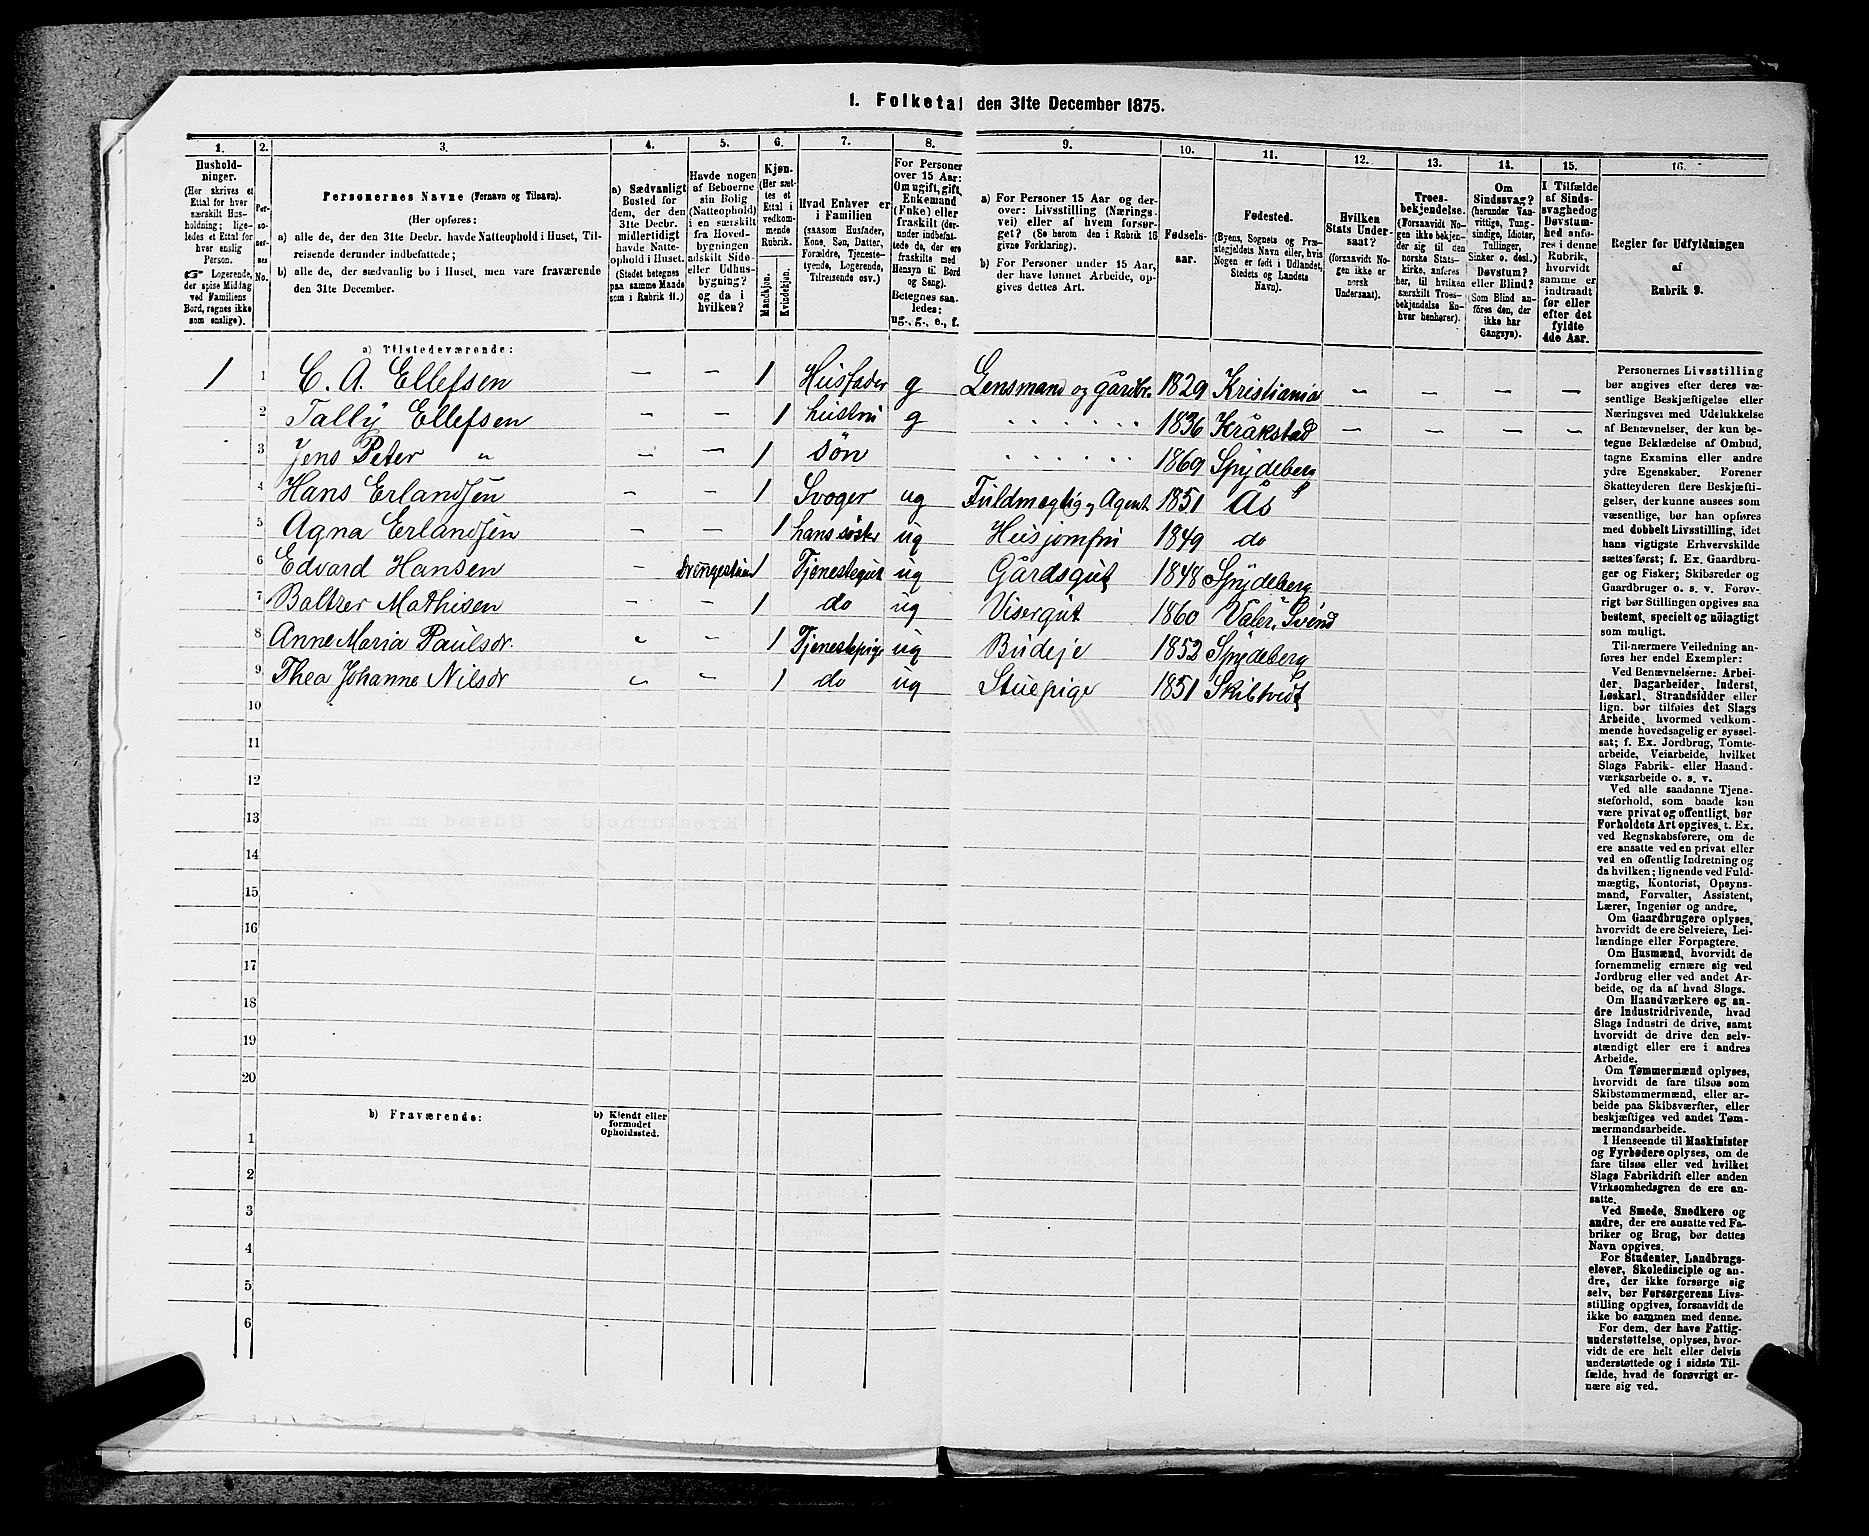 1. Folketal den 31te December 1875.
1. 2. 3. 4. 5. 6. 7. 8. 9. 10. 11. 12. 13. 14. 15. 16.
Hushold-
ninger.
(Her skrives et
Ettal for hver
særskilt Hus-
holdning; lige-
ledes et Ettal for
hver enslig
Person.
☞ Logerende,
der spise Middag
ved Familiens
Bord, regnes ikke
som enslige).
Per-
so-
ner-
nes
No.
Personernes Navne (Fornavn og Tilnavn).
(Her opføres:
a) alle de, der den 31te Decbr. havde Natteophold i Huset, Til-
reisende derunder indbefattede;
b) alle de, der sædvanlig bo i Huset, men vare fraværende
den 31te December.
a) Sædvanligt
Bosted for
dem, der den
31te Decbr.
midlertidigt
havde Natte-
ophold i Huset.
(Stedet betegnes
paa samme Maade
som i Rubrik 11.)
Havde nogen
af Beboerne
sin Bolig
(Natteophold)
i en særskilt
fra Hoved-
bygningen
adskilt Side-
eller Udhus-
bygning?
og da i
hvilken?
Kjøn.
(Her sæt-
tes et
Ettal i
vedkom-
mende
Rubrik.
Mandkjøn.
Kvindekjøn.
Hvad Enhver er
i Familien
(saasom Husfader,
Kone, Søn, Datter,
Forældre, Tjeneste-
tyende, Logerende,
Tilreisende osv.)
For Personer
over 15 Aar:
Om ugift, gift,
Enkemand
(Enke) eller
fraskilt (der-
under indbefat-
tede de, der ere
fraskilte med
Hensyn til Bord
og Seng).
Betegnes saa-
ledes:
ug., g., e., f.
a) For Personer 15 Aar og der-
over: Livsstilling (Nærings-
vei) eller af hvem forsør-
get? (Se herom den i Rubrik 16
givne Forklaring).
b) For Personer under 15 Aar,
der have lønnet Arbeide, op-
gives dettes Art.
Fødsels-
aar.
Fødested.
(Byens, Sognets og Præ-
stegjeldets Navn eller, hvis
Nogen er født i Udlandet,
Stedets og Landets
Navn).
Hvilken
Stats Under-
saat?
(forsaavidt No-
gen ikke er
norsk
Undersaat).
Troes-
bekjendelse.
(Forsaavidt No-
gen ikke bekjen-
der sig til den
norske Stats-
kirke, anføres
her, til hvilken
særskilt Troes-
bekjendelse En-
hver henhører).
Om
Sindssvag?
(herunder Vaa-
vittige, Tung-
sindige, Idioter,
Tullinger,
Sinker o. desl.)
Døvstum?
eller Blind?
(Som Blind an-
føres den, der
ikke har
Gangsyn).
I Tilfælde
af Sinds-
svaghed og
Døvstum-
hed anfø-
res i denne
Rubrik,
hvorvidt
samme er
indtraadt
før eller
efter det
fyldte
4de Aar.
Regler for Udfyldningen
af
Rubrik 9.
a) Tilstedeværende:
1 1 C. A. Ellefsen — — 1 Husfader g Lensmand og Gårdbr. 1829 Kristiania — — — —
2 Tally Ellefsen — — 1 hustru g " " " " " " 1836 Kråkstad — — — —
3 Jens Peter " — — 1 søn " " " " " " 1869 Spydeberg
4 Hans Erlandsen — — 1 Svoger ug Fuldmægtig og Agent 1851 Ås
5 Agna Erlandsen — — 1 hans søster ug Husjomfru 1849 do
6 Edvard Hansen — Drengestuen 1 Tjenestegut ug Gårdsgut 1848 Spydeberg
7 Baltzer Mathisen — — 1 do ug Visergut 1860 Valer,
8 Anne Maria Paulsdr. " " 1 Tjenestepige ug Budeje 1852 Spydeberg
9 Thea Johanne Nilsdr " " 1 do ug Stuepige 1851 Skibtvedt
10
11
12
13
14
15
16
17
18
19
20
b) Fraværende:
b) Kjendt eller
formodet
Opholdssted.
1
2
3
4
5
6
Personernes Livsstilling
bør angives efter deres væ-
sentlige Beskjæftigelse eller
Næringsvei med Udelukkelse
af Benævnelser, der kun be-
tegne Beklædelse af Ombud,
tagne Examina eller andre
ydre Egenskaber. Forener
Skatteyderen flere Beskjæfti-
gelser, der kunne ansees som
væsentlige, bør han opføres
med dobbelt Livsstilling, idet
hans vigtigste Erhvervskilde
sættes først; f. Ex. Gaardbru-
ger og Fisker; Skibsreder og
Gaardbruger o. s. v. Forøv-
rigt bør Stillingen opgives saa
bestemt, specielt og nöiagtigt
som muligt.
Til nærmere Veiledning an-
føres her endel Exempler:
Ved Benævnelserne: Arbei-
der, Dagarbeider, Inderst,
Løskarl, Strandsidder eller
lign. bør tilføies det Slags
Arbeide, hvormed vedkom-
mende hovedsagelig er syssel-
sat; f. Ex. Jordbrug, Tomte-
arbeide, Veiarbeide, hvilket
Slags Fabrik- eller Haand-
værksarbeide o. s. v.
Ved alle saadanne Tjene-
steforhold, som baade kan
være privat og offentligt, bør
Forholdets Art opgives, t. Ex.
ved Regnskabsførere, om de
ere ansatte ved en privat eller
ved en offentlig Indretning og
da hvilken; lignende ved Fuld-
mægtig, Kontorist, Opsyns-
mand, Forvalter, Assistent,
Lærer, Ingeniør og andre.
Om Gaardbrugere oplyses,
hvorvidt de ere Selveiere, Lei-
lændinge eller Forpagtere.
Om Husmænd, hvorvidt de
fornemmelig ernære sig ved
Jordbrug eller ved andet Ar-
beide, og da af hvad Slags.
Om Haandværkere og an-
dre Industridrivende, hvad
Slags Industri de drive, samt
hvorvidt de drive den selv-
stændigt eller ere i andres
Arbeide.
Om Tømmermænd oplyses,
hvorvidt de fare tilsøs som
Skibstømmermænd, eller ar-
beide paa Skibsværfter, eller
beskjæftiges ved andet Tøm-
mermandsarbeide.
I Henseende til Maskinister
og Fyrbødere oplyses, om de
fare tilsøs eller ved hvilket
Slags Fabrikdrift eller anden
Virksomhedsgren de ere an-
satte.
Ved Smede, Snedkere og
andre, der ere ansatte ved Fa-
briker og Brug, bør dettes
Navn opgives.
For Studenter, Landbrugs-
elever, Skoledisciple og an-
dre, der ikke forsørge sig
selv, bør Forsørgerens Livs-
stilling opgives, forsaavidt de
ikke bo sammen med denne.
For dem, der have Fattig-
understøttelse, oplyses, hvor-
vidt de ere helt eller delvis
understøttede og i sidste Til-
fælde, hvad de forøvrigt er-
nære sig ved.